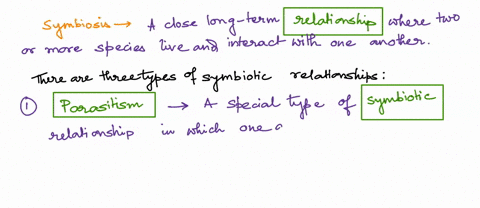 Symbiosis → A close long-term relationship where two
or more species live and interact with one another.
There are three types of symbiotic relationships:
① Parasitism → A special type of symbiotic
relationship in which one